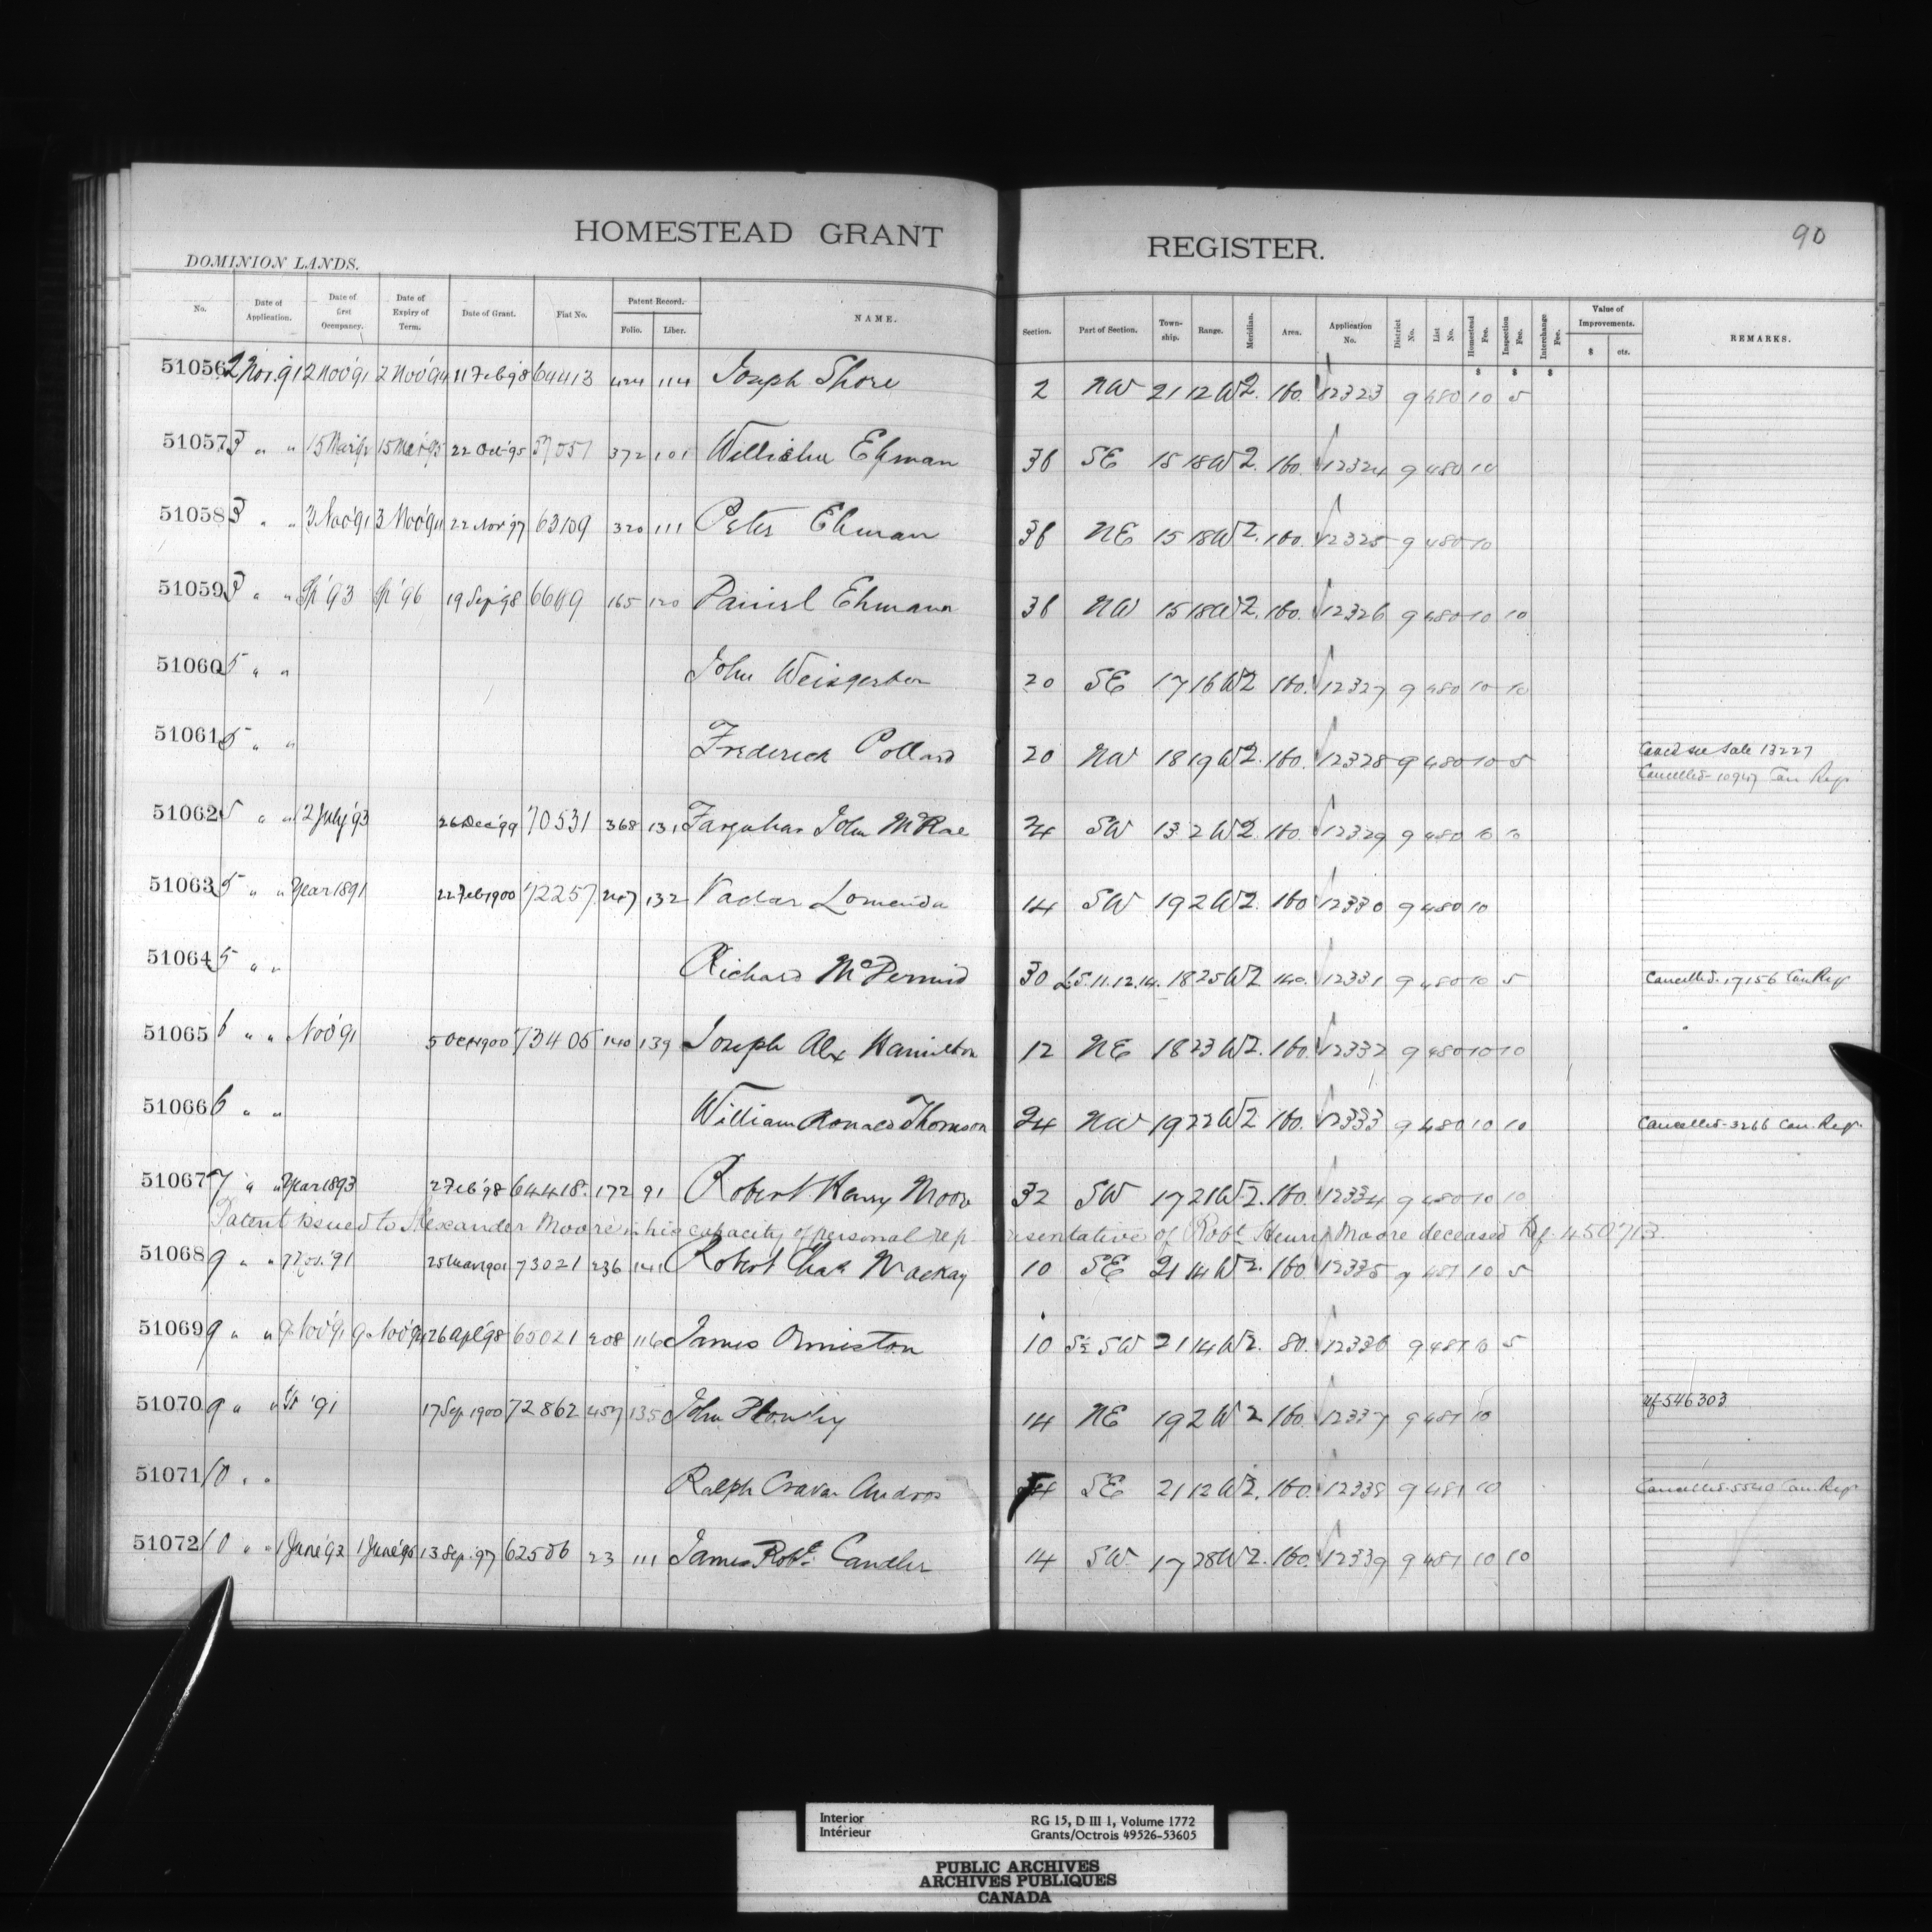 HOMESTEAD GRANT REGISTER.
90
DOMINION LANDS.
No. Date of Application. Date of first Occupancy. Date of Expiry of Term. Date of Grant. Fiat No. Patent Record. Folio. Liber. NAME. Section. Part of Section. Township. Range. Meridian. Area. Application No. District No. List No. Homestead Fee. Inspection Fee. Interchange Fee. Value of Improvements. $ cts. REMARKS.
$ $ $
51056 2 Nov. 91 2 Nov '91 2 Nov '94 11 Feb 98 64413 424 114 Joseph Shore 2 NW 21 12 W2. 160. 12323 9 480 10 5
51057 3 " " 15 Mar 92 15 Mar 95 22 Oct 95 372 101 Ehman 36 SE 15 18 W2. 160. 12324 9 480 10
51058 3 " " 3 Nov '91 3 Nov '94 22 Nov '97 63109 320 111 Peter Ehman 36 NE 15 18 W2. 160. 12325 9 480 10
51059 3 " " Sp '93 Sp '96 19 Sep 98 165 120 Daniel Ehmann 36 NW 15 18 W2. 160. 12326 9 480 10 10
51060 5 " " John Weisgerber 20 SE 17 16 W2 160. 12327 9 480 10 10
51061 5 " " Frederick Pollard 20 NW 18 19 W2. 160. 12328 9 480 10 5 Canc'd see Sale 13227
Cancelled Can Regr
51062 5 " " 2 July '93 26 Dec '99 70531 368 131 Farquhar John McRae 24 SW 13 2 W2. 160. 12329 9 480 10 10
51063 5 " " Year 1891 22 Feb 1900 72257 247 132 Lomenda 14 SW 19 2 W2. 160 12330 9 480 10
51064 5 " " Richard McDermid 30 LS. 11. 12. 14. 18 25 W2 140. 12331 9 480 10 5 Cancelled. 17156 Can Regr
51065 6 " " Nov '91 5 Oct 1900 73405 140 139 Joseph Alex Hamilton 12 NE 18 23 W2. 160. 12332 9 480 10 10
51066 6 " " William Ronald Thomson 24 NW 19 22 W2 160. 12333 9 480 10 10 Cancelled 3266 Can. Regr.
51067 7 " " Year 1893 2 Feb '98 64418. 172 91 Robert Henry Moore 32 SW 17 21 W2. 160. 12334 9 480 10 10
Patent issued to Alexander Moore in his capacity of personal representative of Robt Henry Moore deceased Ref. 450713.
51068 9 " " 7 Nov. '91 25 Mar 1901 73021 236 141 Robert Chas Mackay 10 SE 21 14 W2. 160 12335 9 481 10 5
51069 9 " " 9 Nov '91 9 Nov '94 26 Apl '98 65021 208 116 James Ormiston 10 S½ SW 21 14 W2. 80. 12336 9 481 10 5
51070 9 " " '91 17 Sep 1900 72862 457 135 John 14 NE 19 2 W2 160. 12337 9 481 10 ref 546303
51071 10 " " Ralph Andros SE 21 12 W2. 160. 12338 9 481 10 Cancelled 5540 Can. Regr
51072 10 " " 1 June '92 1 June '95 13 Sep. 97 62586 23 111 James Robt. Candler 14 SW 17 28 W2. 160. 12339 9 481 10 10
Interior
Intérieur
RG 15, D III 1, Volume 1772
Grants/Octrois 49526-53605
PUBLIC ARCHIVES
ARCHIVES PUBLIQUES
CANADA